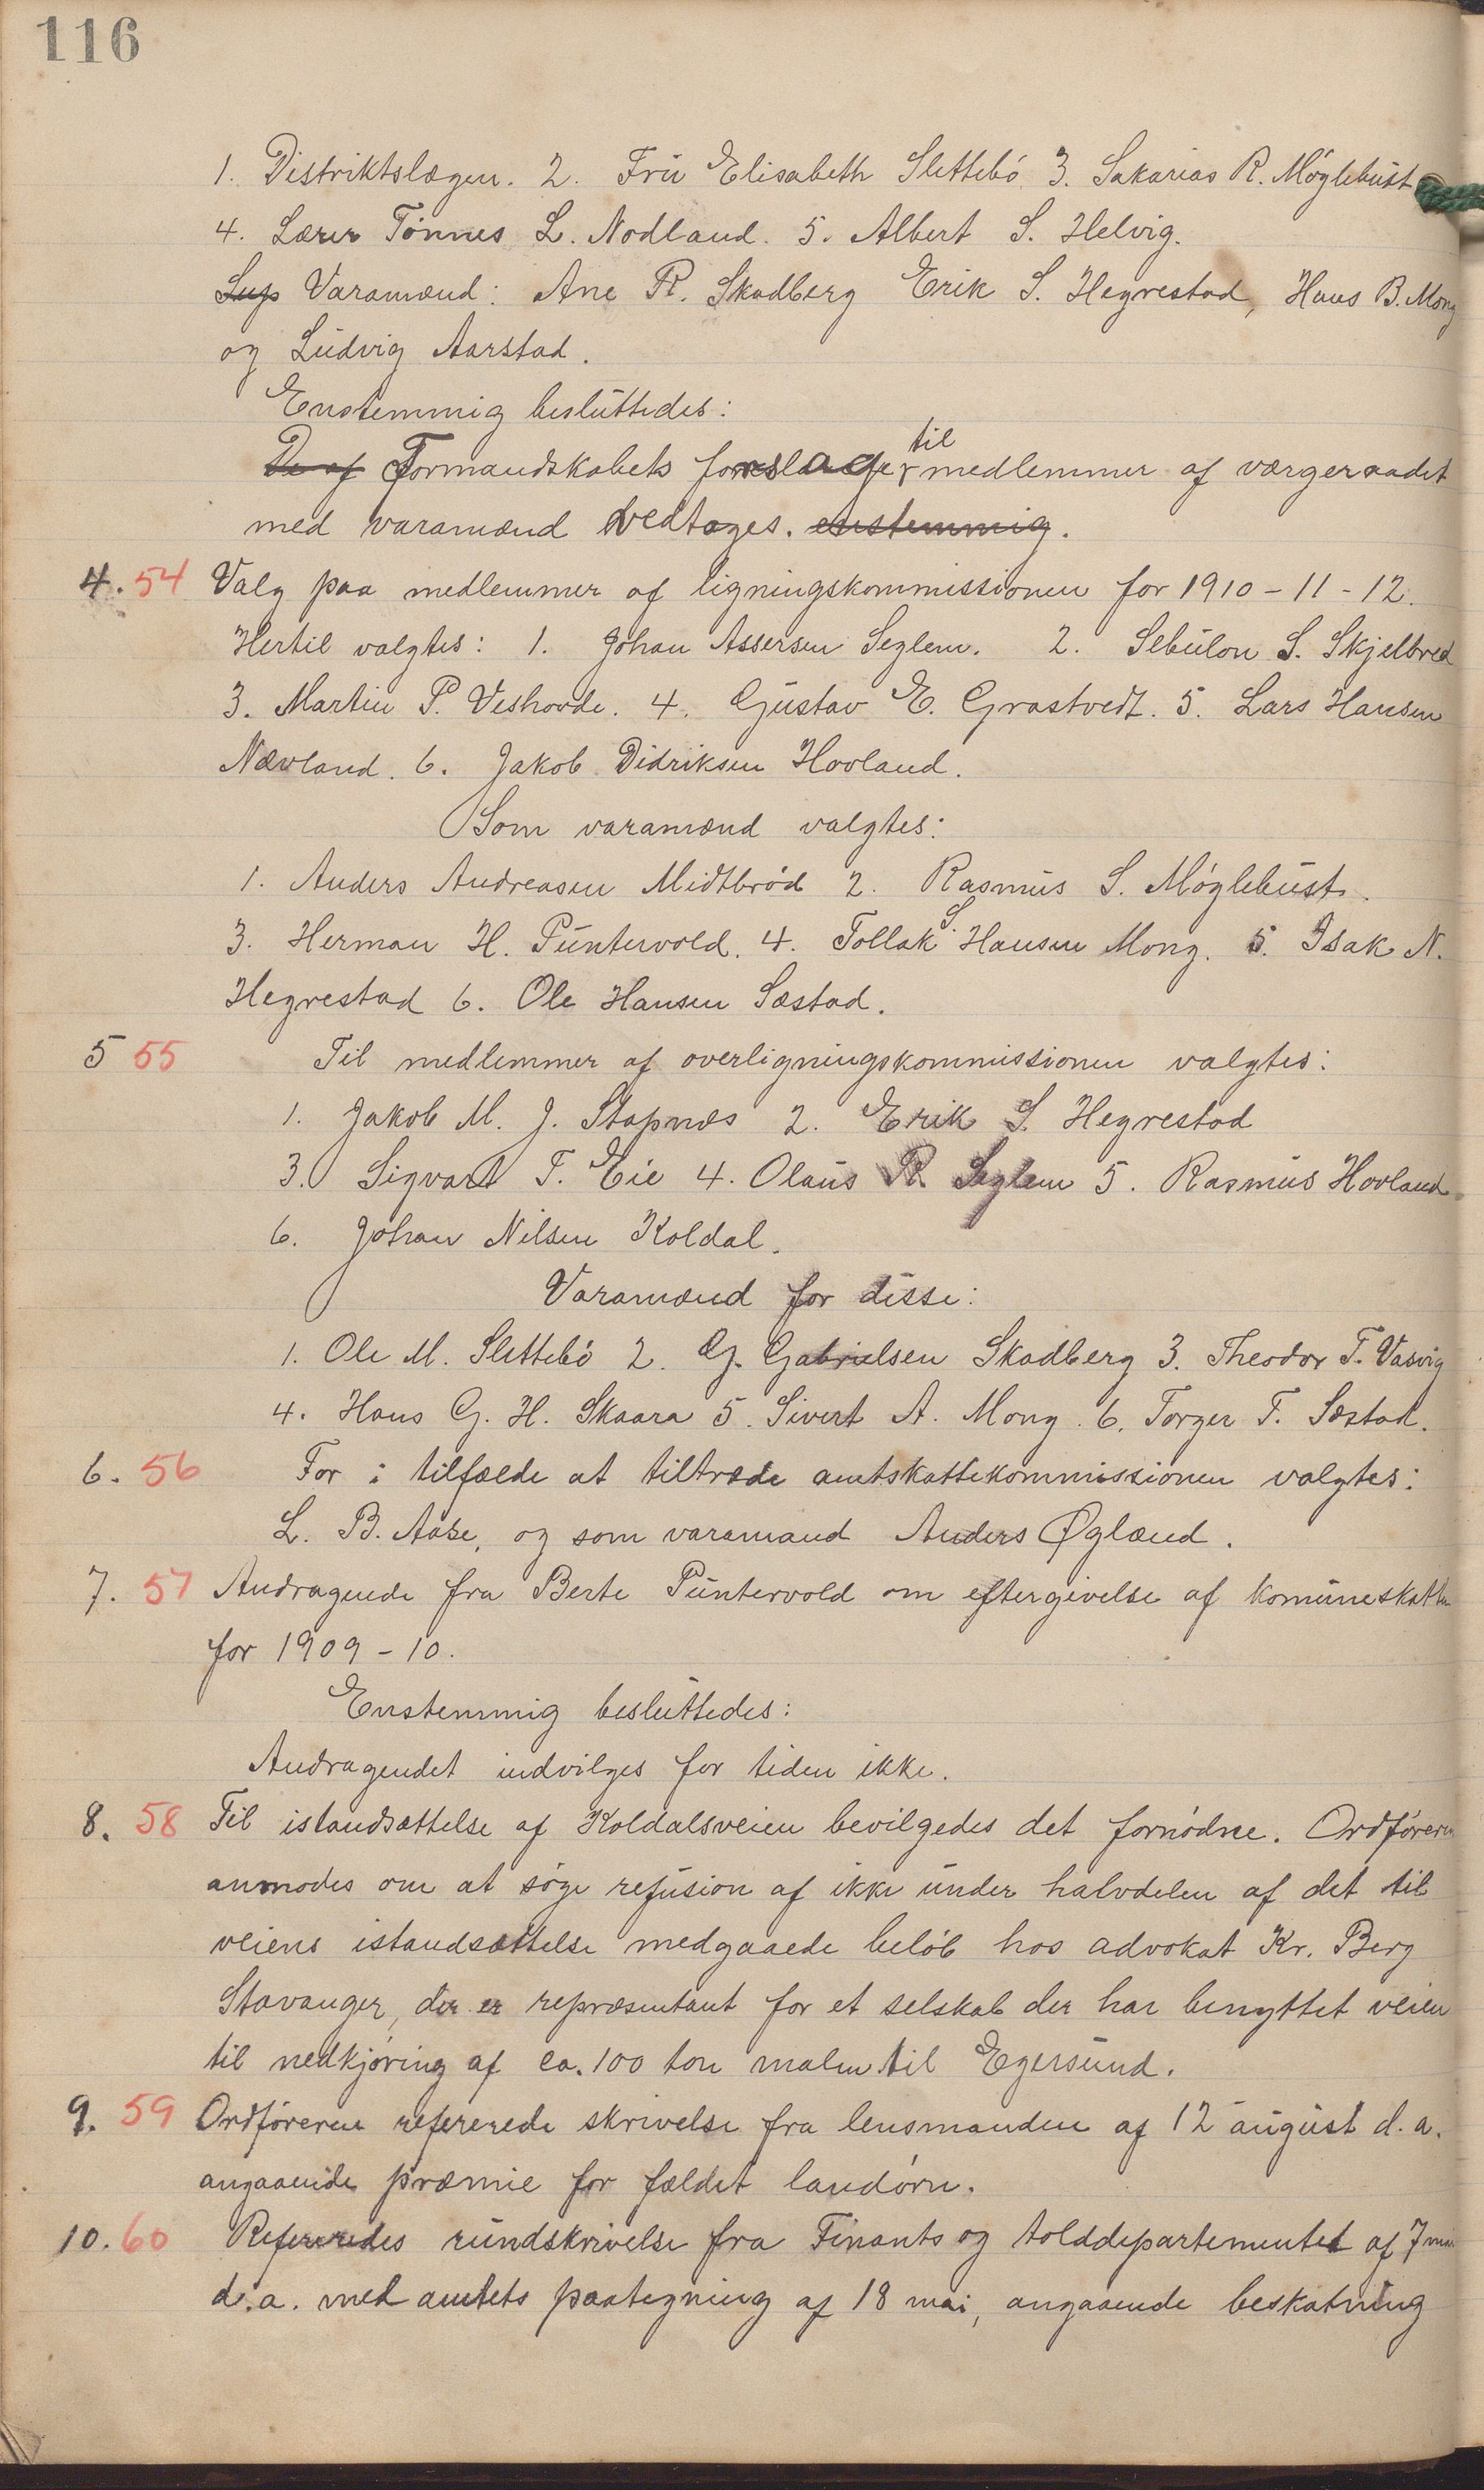 116
1. Distriktslægen. 2. Frü Elisabeth Slettebö 3. Sakarias R. Möglebüst
4. Lærer Tönnes L. Nodland. 5. Albert S. Helvig.
Sup Varamænd: Ane R. Skadberg Erik S. Hegrestad, Hans B. Mong
og Lüdvig Aarstad.
Enstemmig beslüttedes:
De af Formandskabets forslag til medlemmer af værgeraadet
med varamænd vedtages. enstemmig.
4. 54 Valg paa medlemmer af ligningskommissionen for 1910-11-12.
Hertil valgtes: 1. Johan Assersen Seglem. 2. Sebülon S. Skjelbred
3. Martin P. Veshovde. 4. Güstav E. Grastvedt. 5. Lars Hansen
Nævland. 6. Jakob Didriksen Hovland.
Som varamænd valgtes:
1. Anders Andreasen Midtbröd 2. Rasmüs S. Möglebüst.
3. Herman H. Püntervold. 4. Tollak S. Hansen Mong. 5. Isak N.
Hegrestad 6. Ole Hansen Sæstad.
5 55 Til medlemmer af overligningskommissionen valgtes:
1. Jakob M. J. Stapnes 2. Erik S. Hegrestad
3. Sigvart T. Eie 4. Olaüs R. Seglem 5. Rasmüs Hovland
6. Johan Nilsen Koldal.
Varamænd for disse:
1. Ole M. Slettebö 2. G. Gabrielsen Skadberg 3. Theodor T. Vasvig
4. Hans G. H. Skaara 5. Sivert A. Mong. 6. Torger T. Sæstad.
6. 56 For i tilfælde at tiltræde amtskattekommissionen valgtes:
L. B. Aase, og som varamand Anders Øglænd.
7. 57 Andragende fra Berte Püntervold om eftergivelse af komüneskatten
for 1909-10.
Enstemmig beslüttedes:
Andragendet indvilges for tiden ikke.
8. 58 Til istandsættelse af Koldalsveien bevilgedes det fornödne. Ordföreren
anmodes om at söge refüsion af ikke ünder halvdelen af det til
veiens istandsættelse medgaaede belöb hos advokat Kr. Berg
Stavanger, der er repræsentant for et selskab der har benyttet veien
til nedkjöring af ca. 100 ton malm til Egersünd.
9. 59 Ordföreren refererede skrivelse fra lensmanden af 12 aügüst d. a.
angaaende præmie for fældet landörn.
10. 60 Refereredes ründskrivelse fra Finants og tolddepartementet af 7 mai
d. a. med amtets paategning af 18 mai, angaaende beskatning